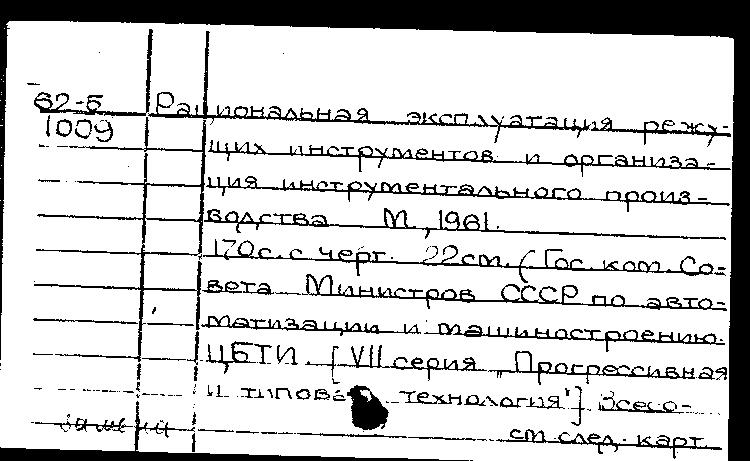 62-5
1009
Рациональная эксплуатация режу-
щих инструментов и организа-
ция инструментального произ-
водства М., 1961.
170с. с черт. 22см. (Гос. ком. Со-
вета Министров СССР по авто-
матизации и машиностроению.
ЦБТИ. [VII серия „Прогрессивная
и типовая технология"] Всесо-
см след. карт.